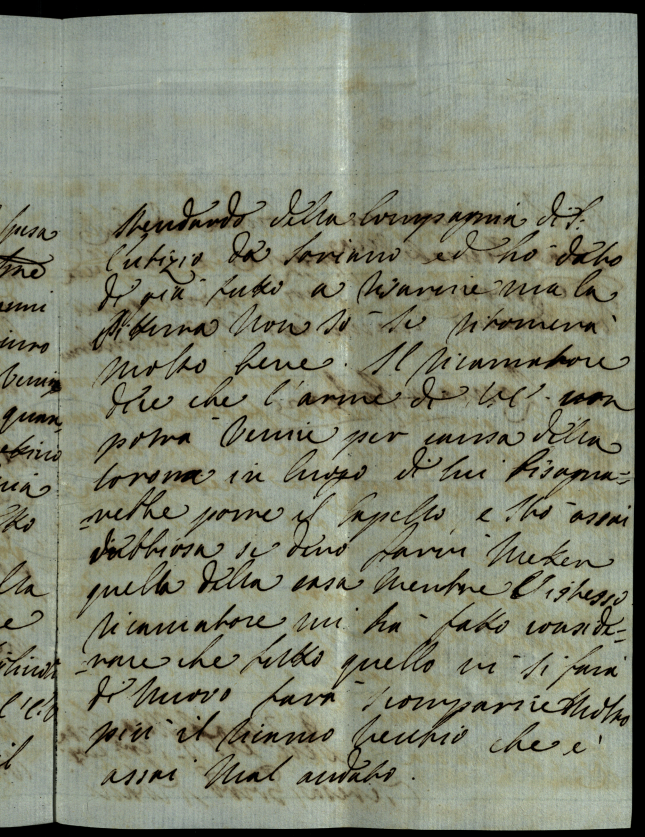 stendardo della Compagnia di S.
Eutizio da Soriano ed ho dato
di già tutto a risarcire ma la
Pittura non so se ritornerà
molto bene. Il ricamatore
dice che l'arme di non
potrà venire per causa della
corona in luogo di cui bisogna=
=rebbe porre il Capello, e stò assai
dubbiosa se devo farvi metter
quella della casa mentre l'istesso
ricamatore mi ha fatto conside=
=rare che tutto quello vi si farà
di nuovo farà scomparire molto
più il ricamo vecchio che è
assai mal andato.